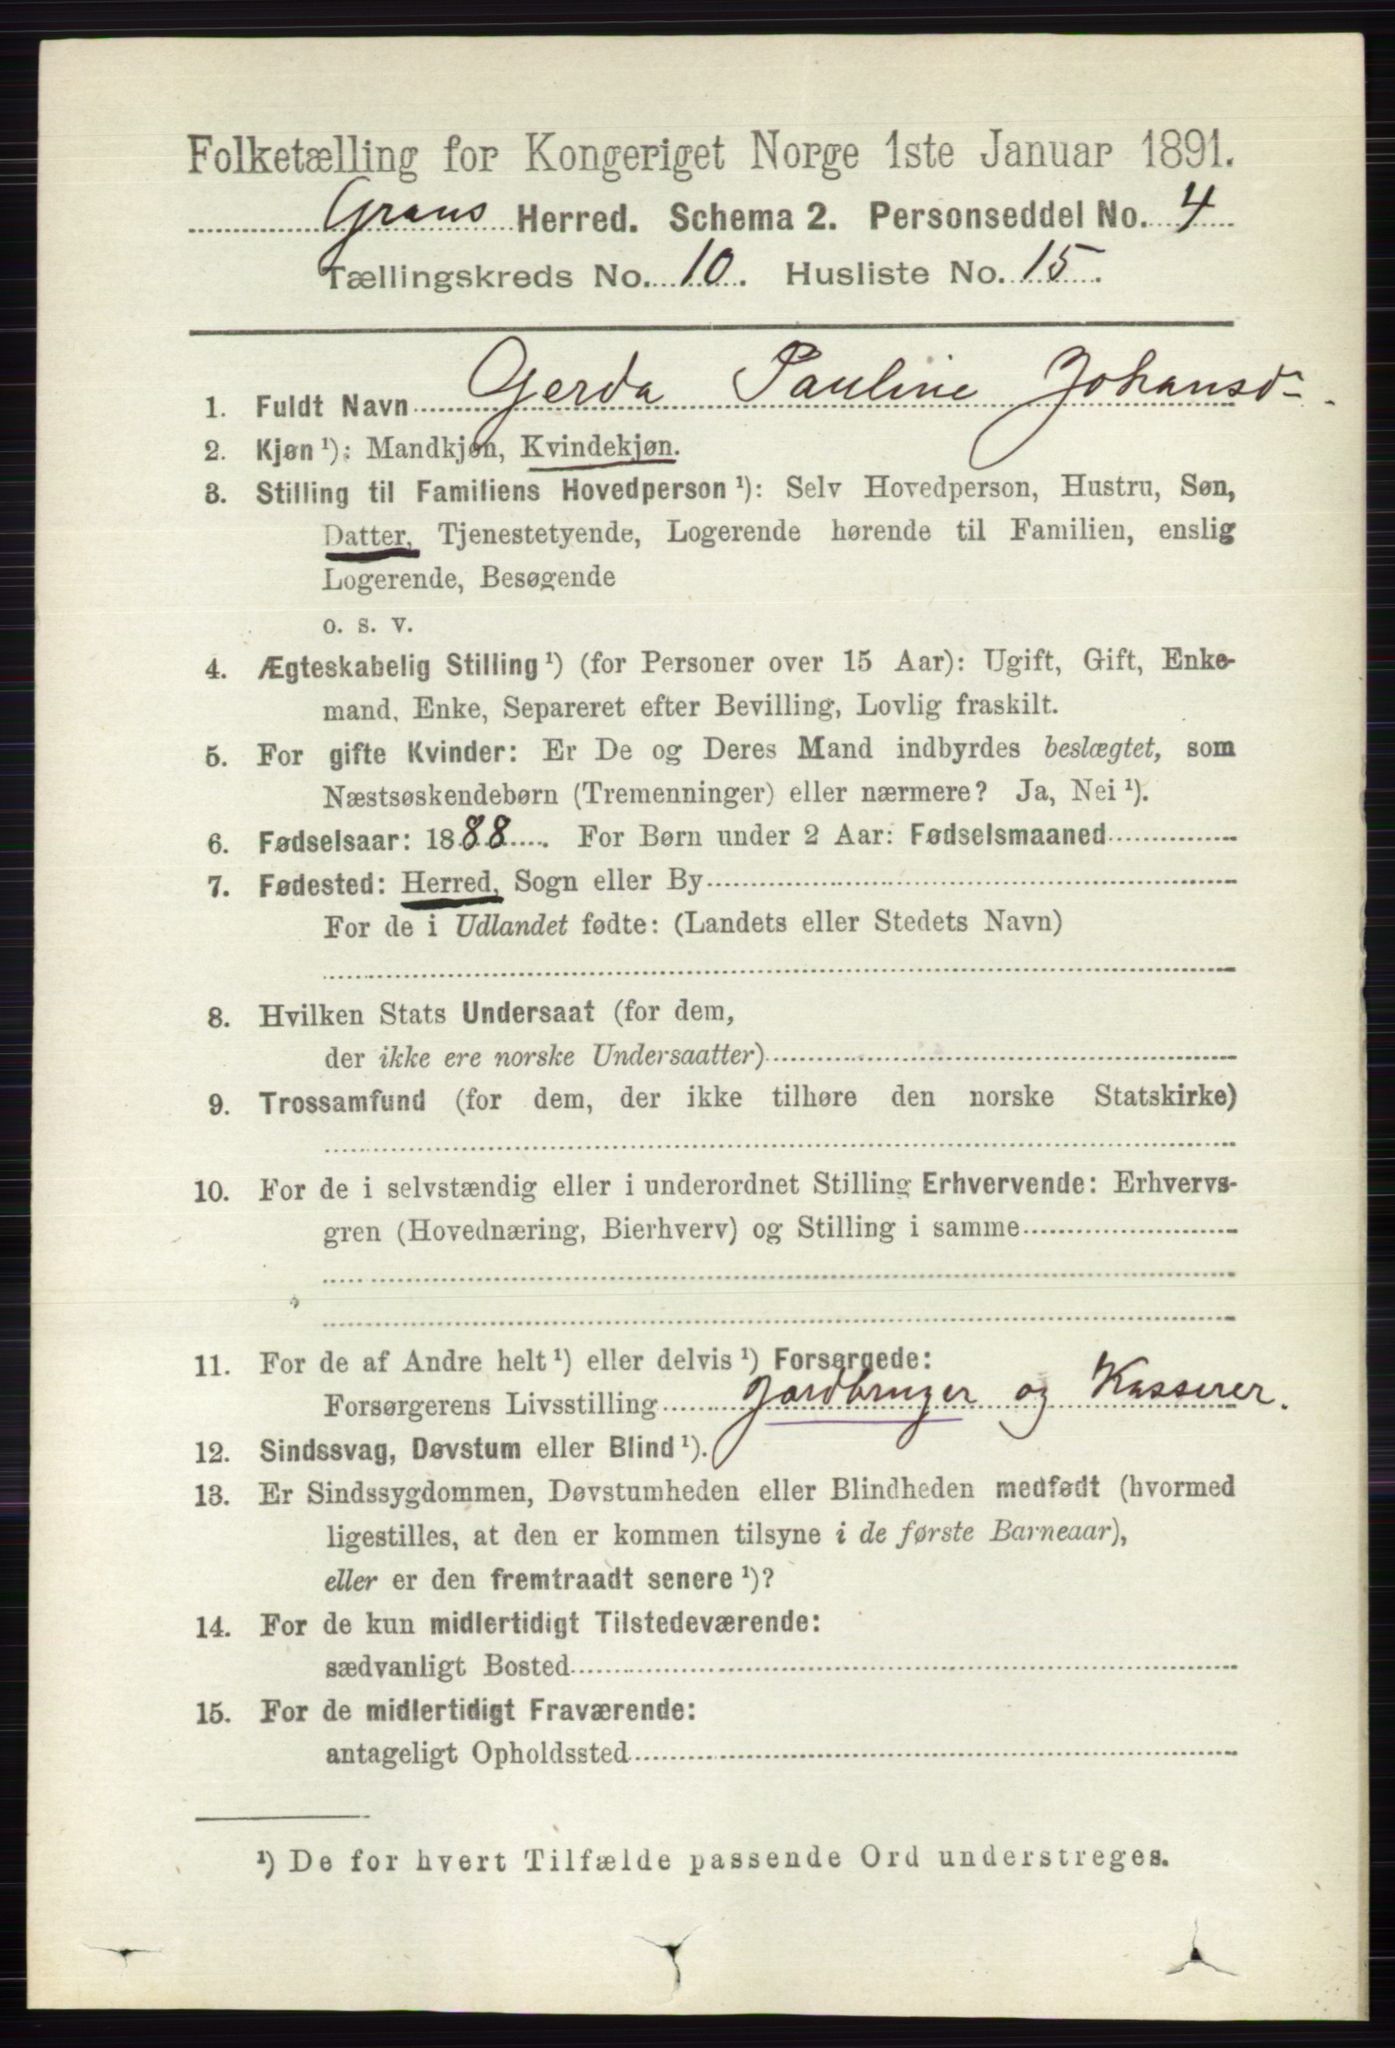 Folketælling for Kongeriget Norge 1ste Januar 1891.
Grans Herred. Schema 2. Personseddel No. 4
Tællingskreds No. 10. Husliste No. 15.
1. Fuldt Navn Gerda Pauline Johansd-.
2. Kjøn ¹): Mandkjøn, Kvindekjøn.
3. Stilling til Familiens Hovedperson ¹): Selv Hovedperson, Hustru, Søn,
Datter, Tjenestetyende, Logerende hørende til Familien, enslig
Logerende, Besøgende
o. s. v.
4. Ægteskabelig Stilling ¹) (for Personer over 15 Aar): Ugift, Gift, Enke-
mand, Enke, Separeret efter Bevilling, Lovlig fraskilt.
5. For gifte Kvinder: Er De og Deres Mand indbyrdes beslægtet, som
Næstsøskendebørn (Tremenninger) eller nærmere? Ja, Nei ¹).
6. Fødselsaar: 1888. For Børn under 2 Aar: Fødselsmaaned
7. Fødested: Herred, Sogn eller By
For de i Udlandet fødte: (Landets eller Stedets Navn)
8. Hvilken Stats Undersaat (for dem,
der ikke ere norske Undersaatter)
9. Trossamfund (for dem, der ikke tilhøre den norske Statskirke)
10. For de i selvstændig eller i underordnet Stilling Erhvervende: Erhvervs-
gren (Hovednæring, Bierhverv) og Stilling i samme
11. For de af Andre helt ¹) eller delvis ¹) Forsørgede:
Forsørgerens Livsstilling Jordbruger og Kasserer.
12. Sindssvag, Døvstum eller Blind ¹).
13. Er Sindssygdommen, Døvstumheden eller Blindheden medfødt (hvormed
ligestilles, at den er kommen tilsyne i de første Barneaar),
eller er den fremtraadt senere ¹)?
14. For de kun midlertidigt Tilstedeværende:
sædvanligt Bosted
15. For de midlertidigt Fraværende:
antageligt Opholdssted
¹) De for hvert Tilfælde passende Ord understreges.